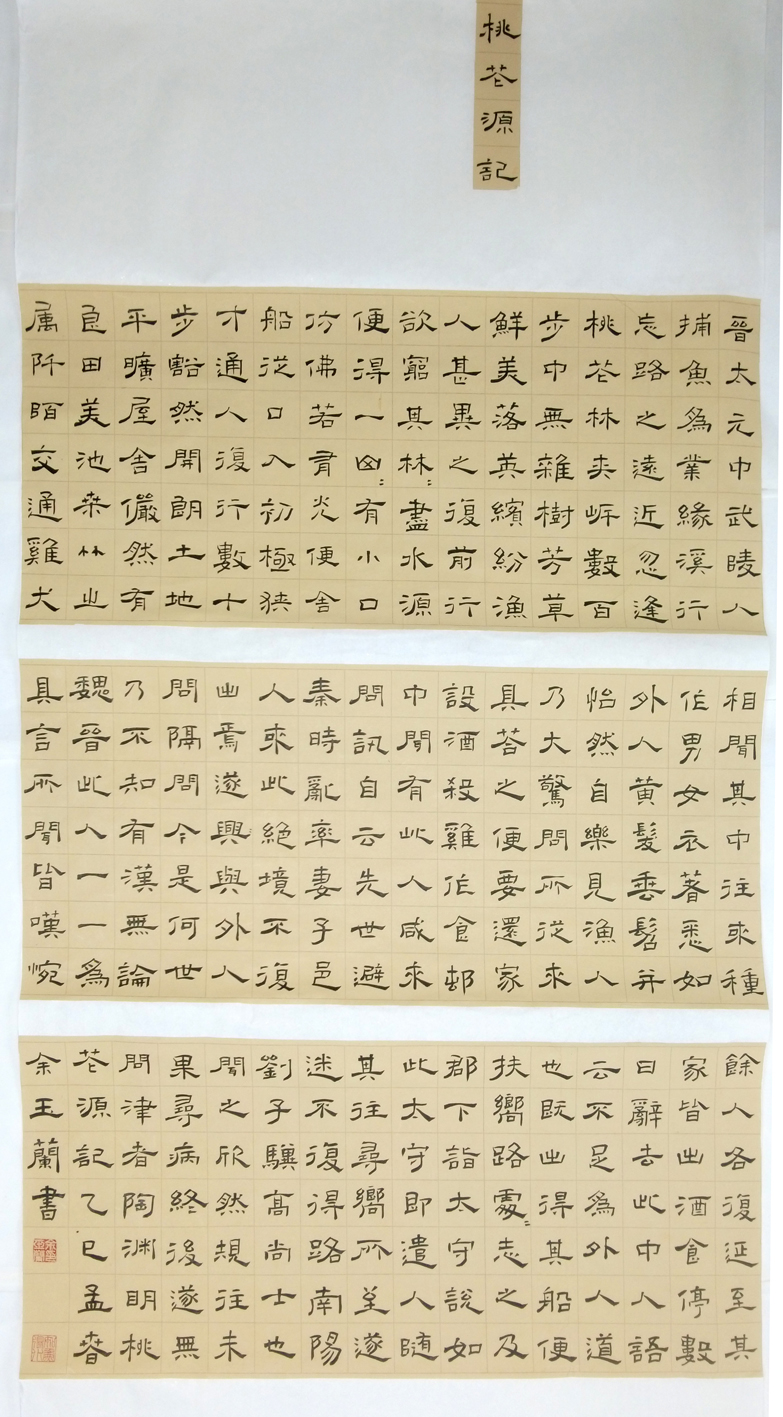 桃花源記
晉太元中武陵人
捕魚為業緣溪行
忘路之遠近忽逢
桃花林夾岸數百
步中無雜樹芳草
鮮美落英繽紛漁
人甚異之復前行
欲窮其林〻盡水源
便得一山〻有小口
仿佛若有光便舍
船從口入初極狹
才通人復行數十
步豁然開朗土地
平曠屋舍儼然有
良田美池桑竹之
属阡陌交通雞犬
相聞其中往來種
作男女衣著悉如
外人黃髮垂髫并
怡然自樂見漁人
乃大驚問所從來
具答之便要還家
設酒殺雞作食邨
中聞有此人咸來
問訊自云先世避
秦時亂率妻子邑
人來此絕境不復
出焉遂興與外人
間隔問今是何世
乃不知有漢無論
魏晉此人一一為
具言所聞皆嘆惋
餘人各復延至其
家皆出酒食停數
日辭去此中人語
云不足為外人道
也既出得其船便
扶嚮路處〻志之及
郡下詣太守說如
此太守即遣人隨
其往尋嚮所至遂
迷不復得路南陽
劉子驥高尚士也
聞之欣然規往未
果尋病終後遂無
問津者陶淵明桃
花源記乙巳孟春
余玉蘭書